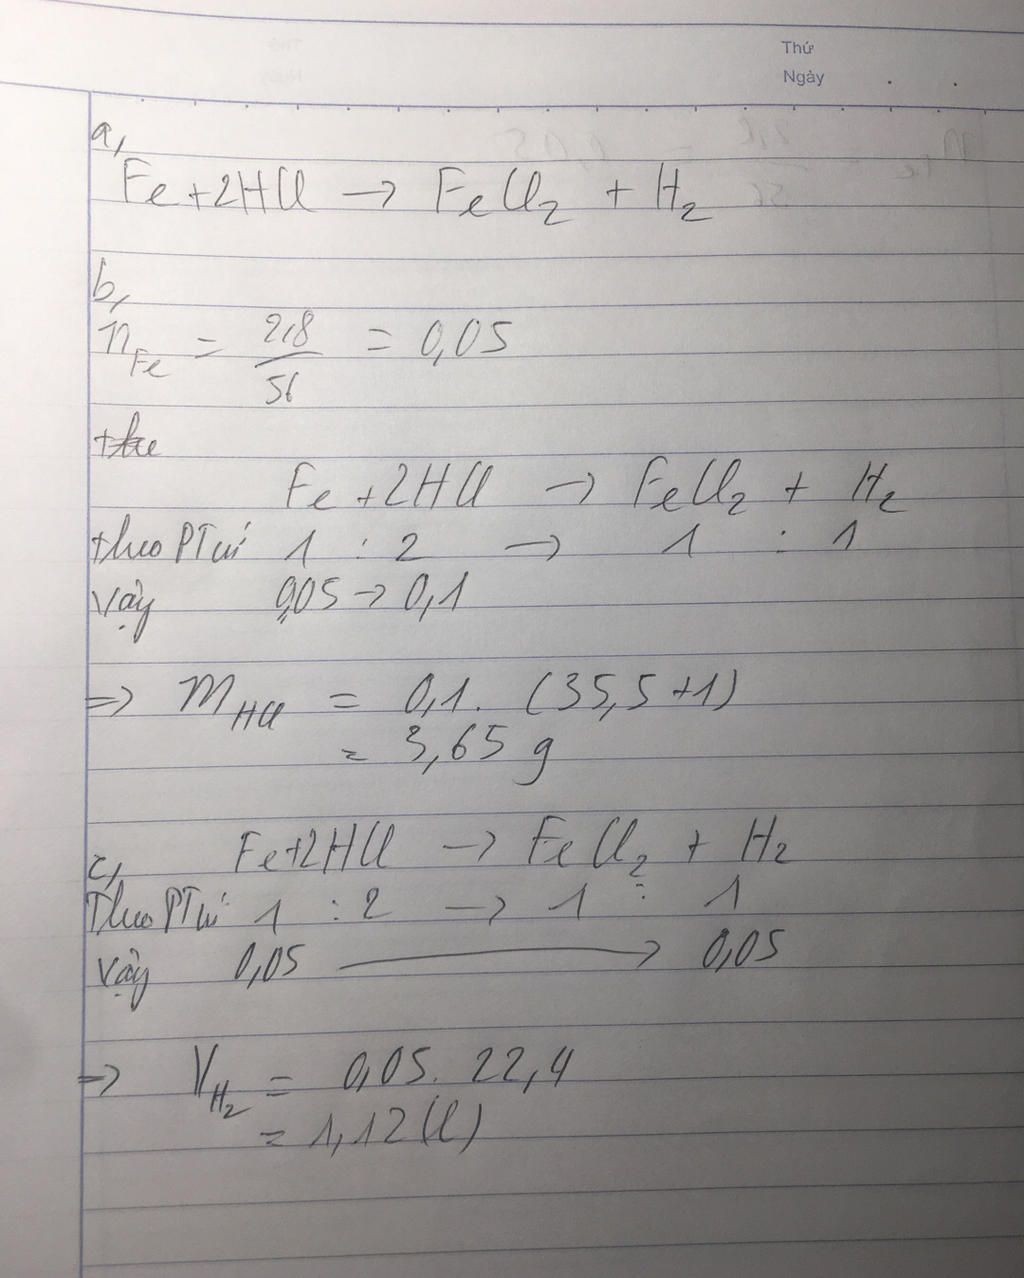 Thứ
Ngày
a,
Fe + 2HCl → FeCl₂ + H₂
b,
n_Fe = 2,8/56 = 0,05
Fe + 2HCl → FeCl₂ + H₂
theo PTứ 1 : 2 → 1 : 1
Vậy 0,05 → 0,1
=> m_HCl = 0,1. (35,5+1)
= 3,65 g
c, Fe+2HCl → FeCl₂ + H₂
Theo PTứ 1 : 2 → 1 : 1
Vậy 0,05 → 0,05
=> V_H₂ = 0,05. 22,4
= 1,12 (l)